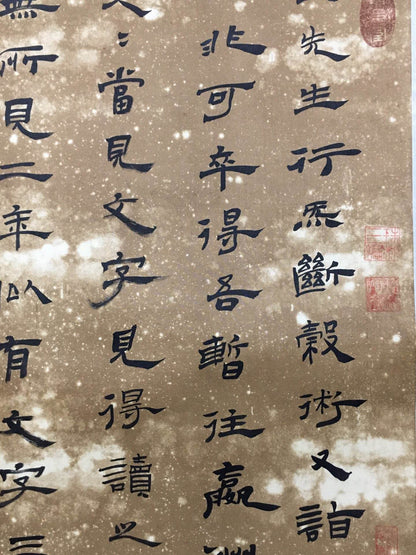 先生行炁斷穀術又詣
非可卒得吾暫往瀛
久〻當見文字見得讀之
無所見二年似有文字三